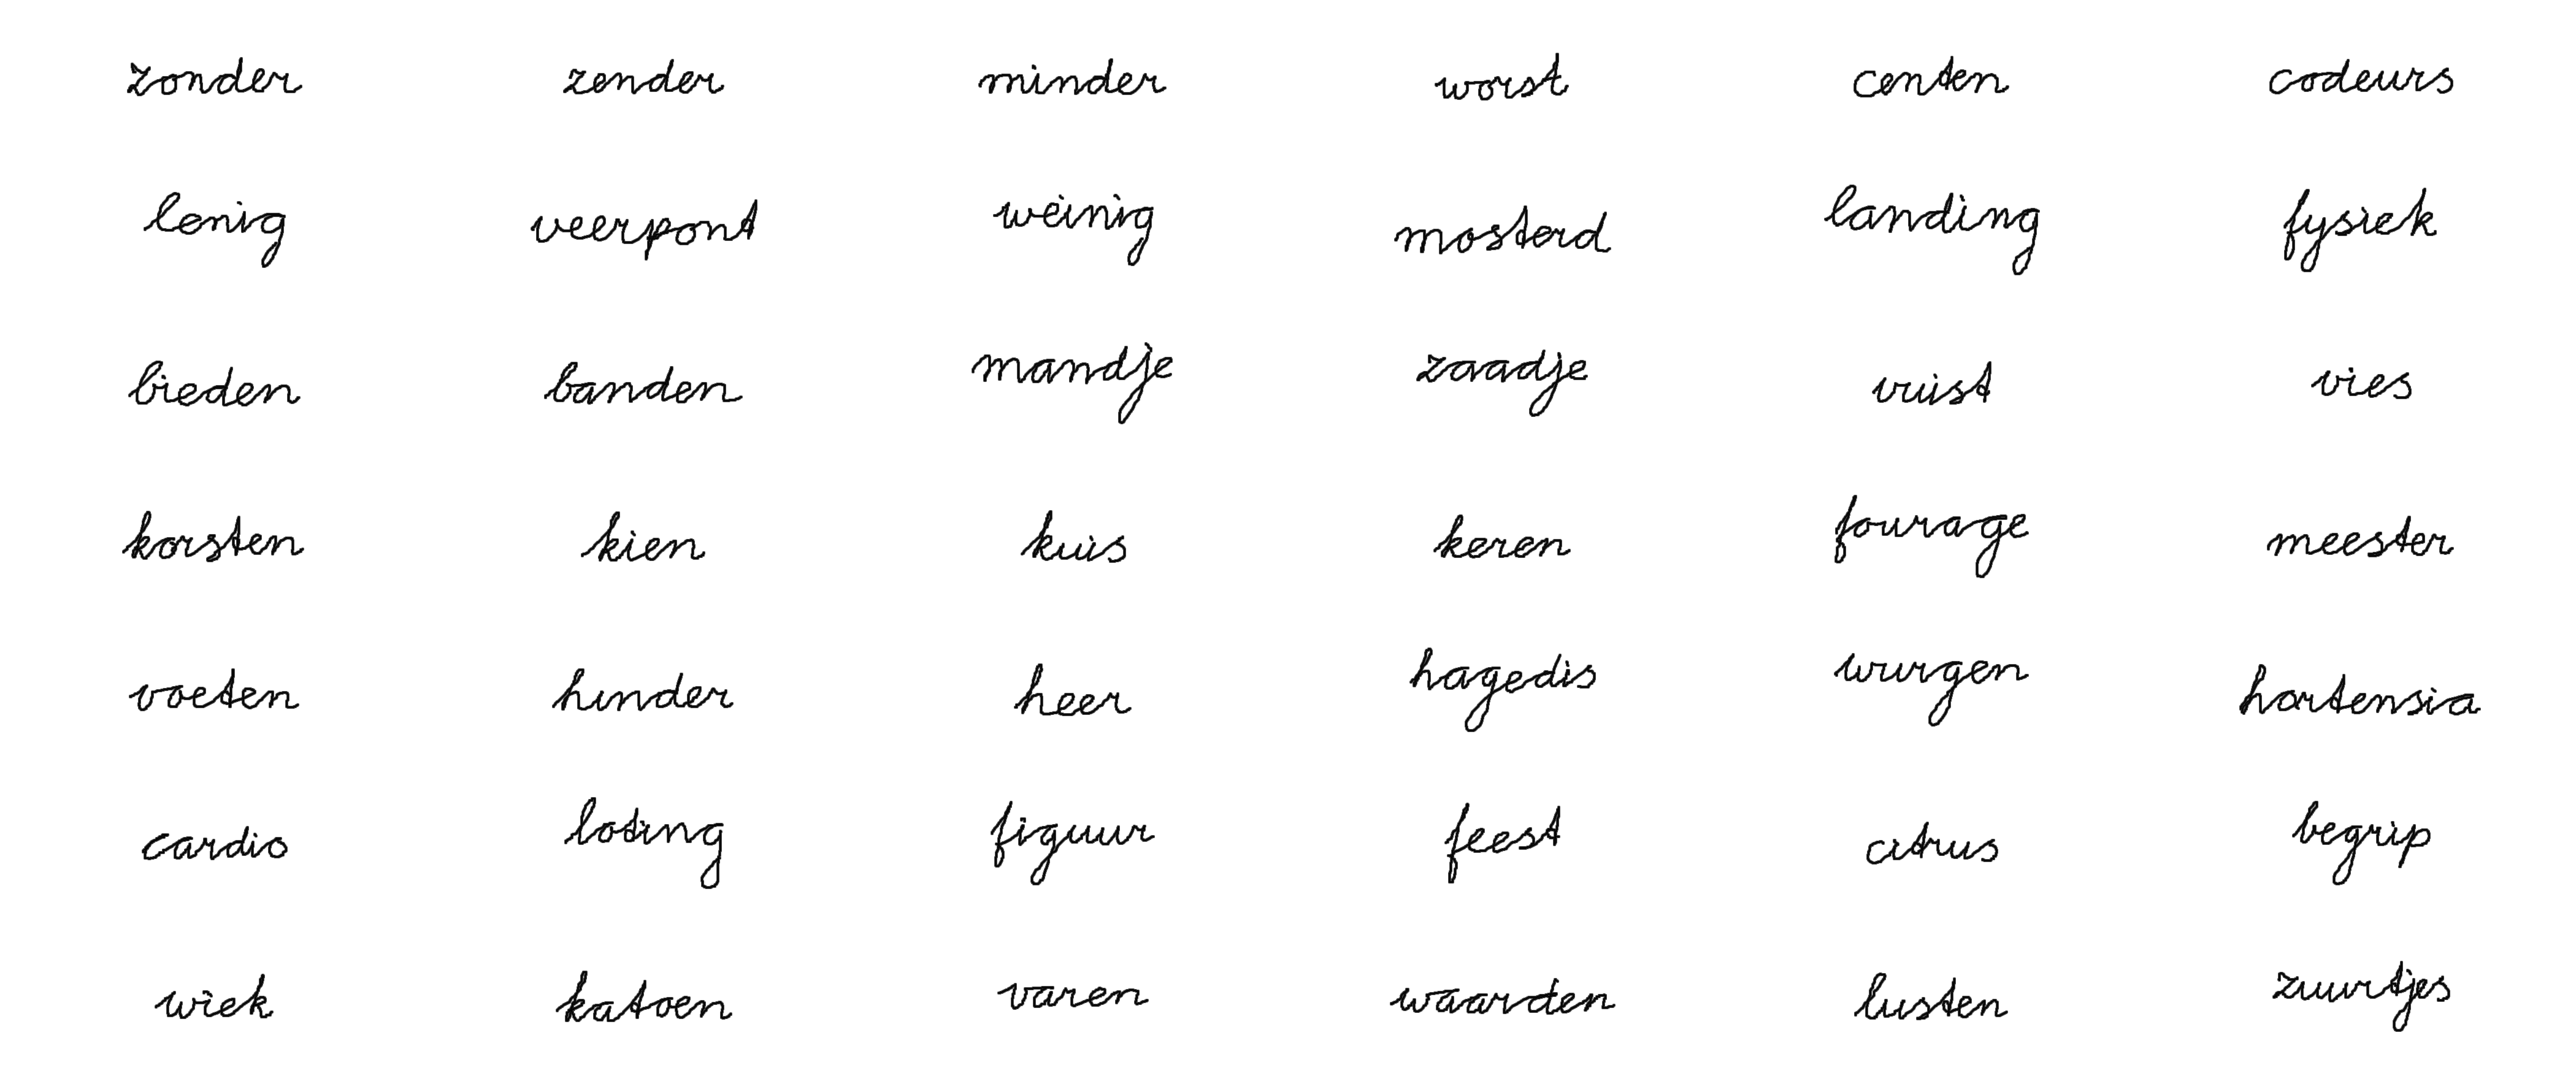 zonder zender minder worst centen codeurs
lenig veerpont weinig mosterd landing fysiek
bieden banden mandje zaadje vuist vies
korsten kien kuis keren fourage meester
voeten hinder heer hagedis wurgen hortensia
cardio loting figuur feest citrus begrip
wiek katoen varen waarden lusten zuurtjes